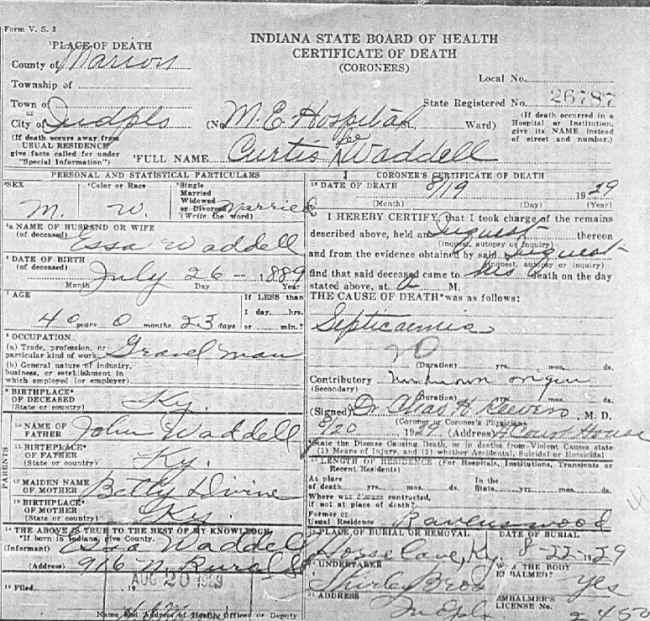 Form V. S. 2
INDIANA STATE BOARD OF HEALTH
CERTIFICATE OF DEATH
(CORONERS)
PLACE OF DEATH
County of Marion
Township of
Town of
or
City of Indpls
(If death occurs away from
USUAL RESIDENCE
give facts called for under
"Special Information")
(No. M. E. Hospital Ward)
Local No.
State Registered No. 26787
(If death occurred in a
Hospital or Institution,
give its NAME instead
of street and number.)
FULL NAME Curtis Lee Waddell
PERSONAL AND STATISTICAL PARTICULARS
SEX M.
Color or Race W.
Single
Married
Widowed
or Divorced
(Write the word) Married
NAME OF HUSBAND OR WIFE
(of deceased) Essa Waddell
DATE OF BIRTH
(of deceased) July 26 - 1889
Month Day Year
AGE
40 years 0 months 23 days
If LESS than
1 day, hrs.
or min.?
OCCUPATION
(a) Trade, profession, or
particular kind of work Gravel man
(b) General nature of industry,
business, or establishment in
which employed (or employer)
BIRTHPLACE
OF DECEASED
(State or country) Ky.
PARENTS
NAME OF
FATHER John Waddell
BIRTHPLACE
OF FATHER
(State or country) Ky.
MAIDEN NAME
OF MOTHER Betty Divine
BIRTHPLACE
OF MOTHER
(State or country) Ky.
THE ABOVE IS TRUE TO THE BEST OF MY KNOWLEDGE
If born in Indiana, give County.
(Informant) Essa Waddell
(Address) 916 N. Rural
Filed AUG 20 1929
Name and Address of Health Officer or Deputy
CORONER'S CERTIFICATE OF DEATH
DATE OF DEATH 8/19 1929
(Month) (Day) (Year)
I HEREBY CERTIFY, that I took charge of the remains
described above, held an Inquest thereon
(inquest, autopsy or inquiry)
and from the evidence obtained by said Inquest
(inquest, autopsy or inquiry)
find that said deceased came to his death on the day
stated above, at a M.
THE CAUSE OF DEATH was as follows:
Septicaemia
(Duration) yrs. mos. ds.
Contributory Unknown origin
(Secondary)
(Duration) yrs. mos. ds.
(Signed) Dr. Chas H Keevers, M. D.
(Coroner or Coroner's Physician)
8/20 19 (Address) Court House
State the Disease Causing Death, or in deaths from Violent Causes state
(1) Means of Injury, and (2) whether Accidental, Suicidal or Homicidal
LENGTH OF RESIDENCE (For Hospitals, Institutions, Transients or
Recent Residents)
At place
of death yrs. mos. ds.
In the
State yrs. mos. ds.
Where was disease contracted,
if not at place of death?
Former or
Usual Residence Ravenswood
PLACE OF BURIAL OR REMOVAL Horse Cave, Ky.
DATE OF BURIAL 8-22-1929
UNDERTAKER Shirley Bros
WAS THE BODY
EMBALMED? Yes
ADDRESS Indpls
EMBALMER'S
LICENSE No. 2450